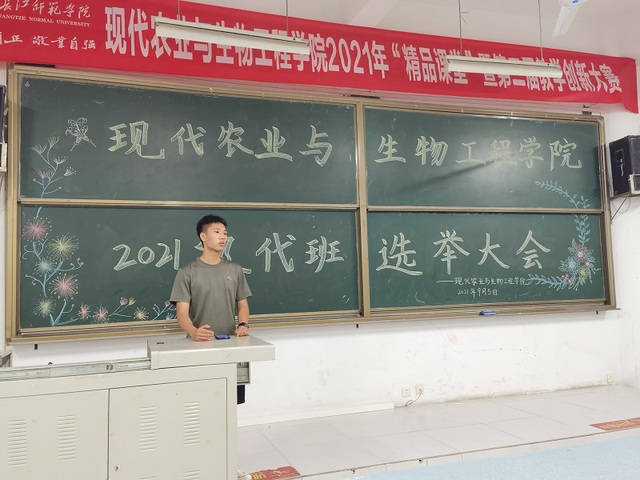 长江师范学院
YANGTZE NORMAL UNIVERSITY
正 敬業自强
现代农业与生物工程学院2021年“精品课堂”暨第二届教学创新大赛
现代农业与 生物工程学院
2021现代班 选举大会
——现代农业与生物工程学院
2021年9月5日